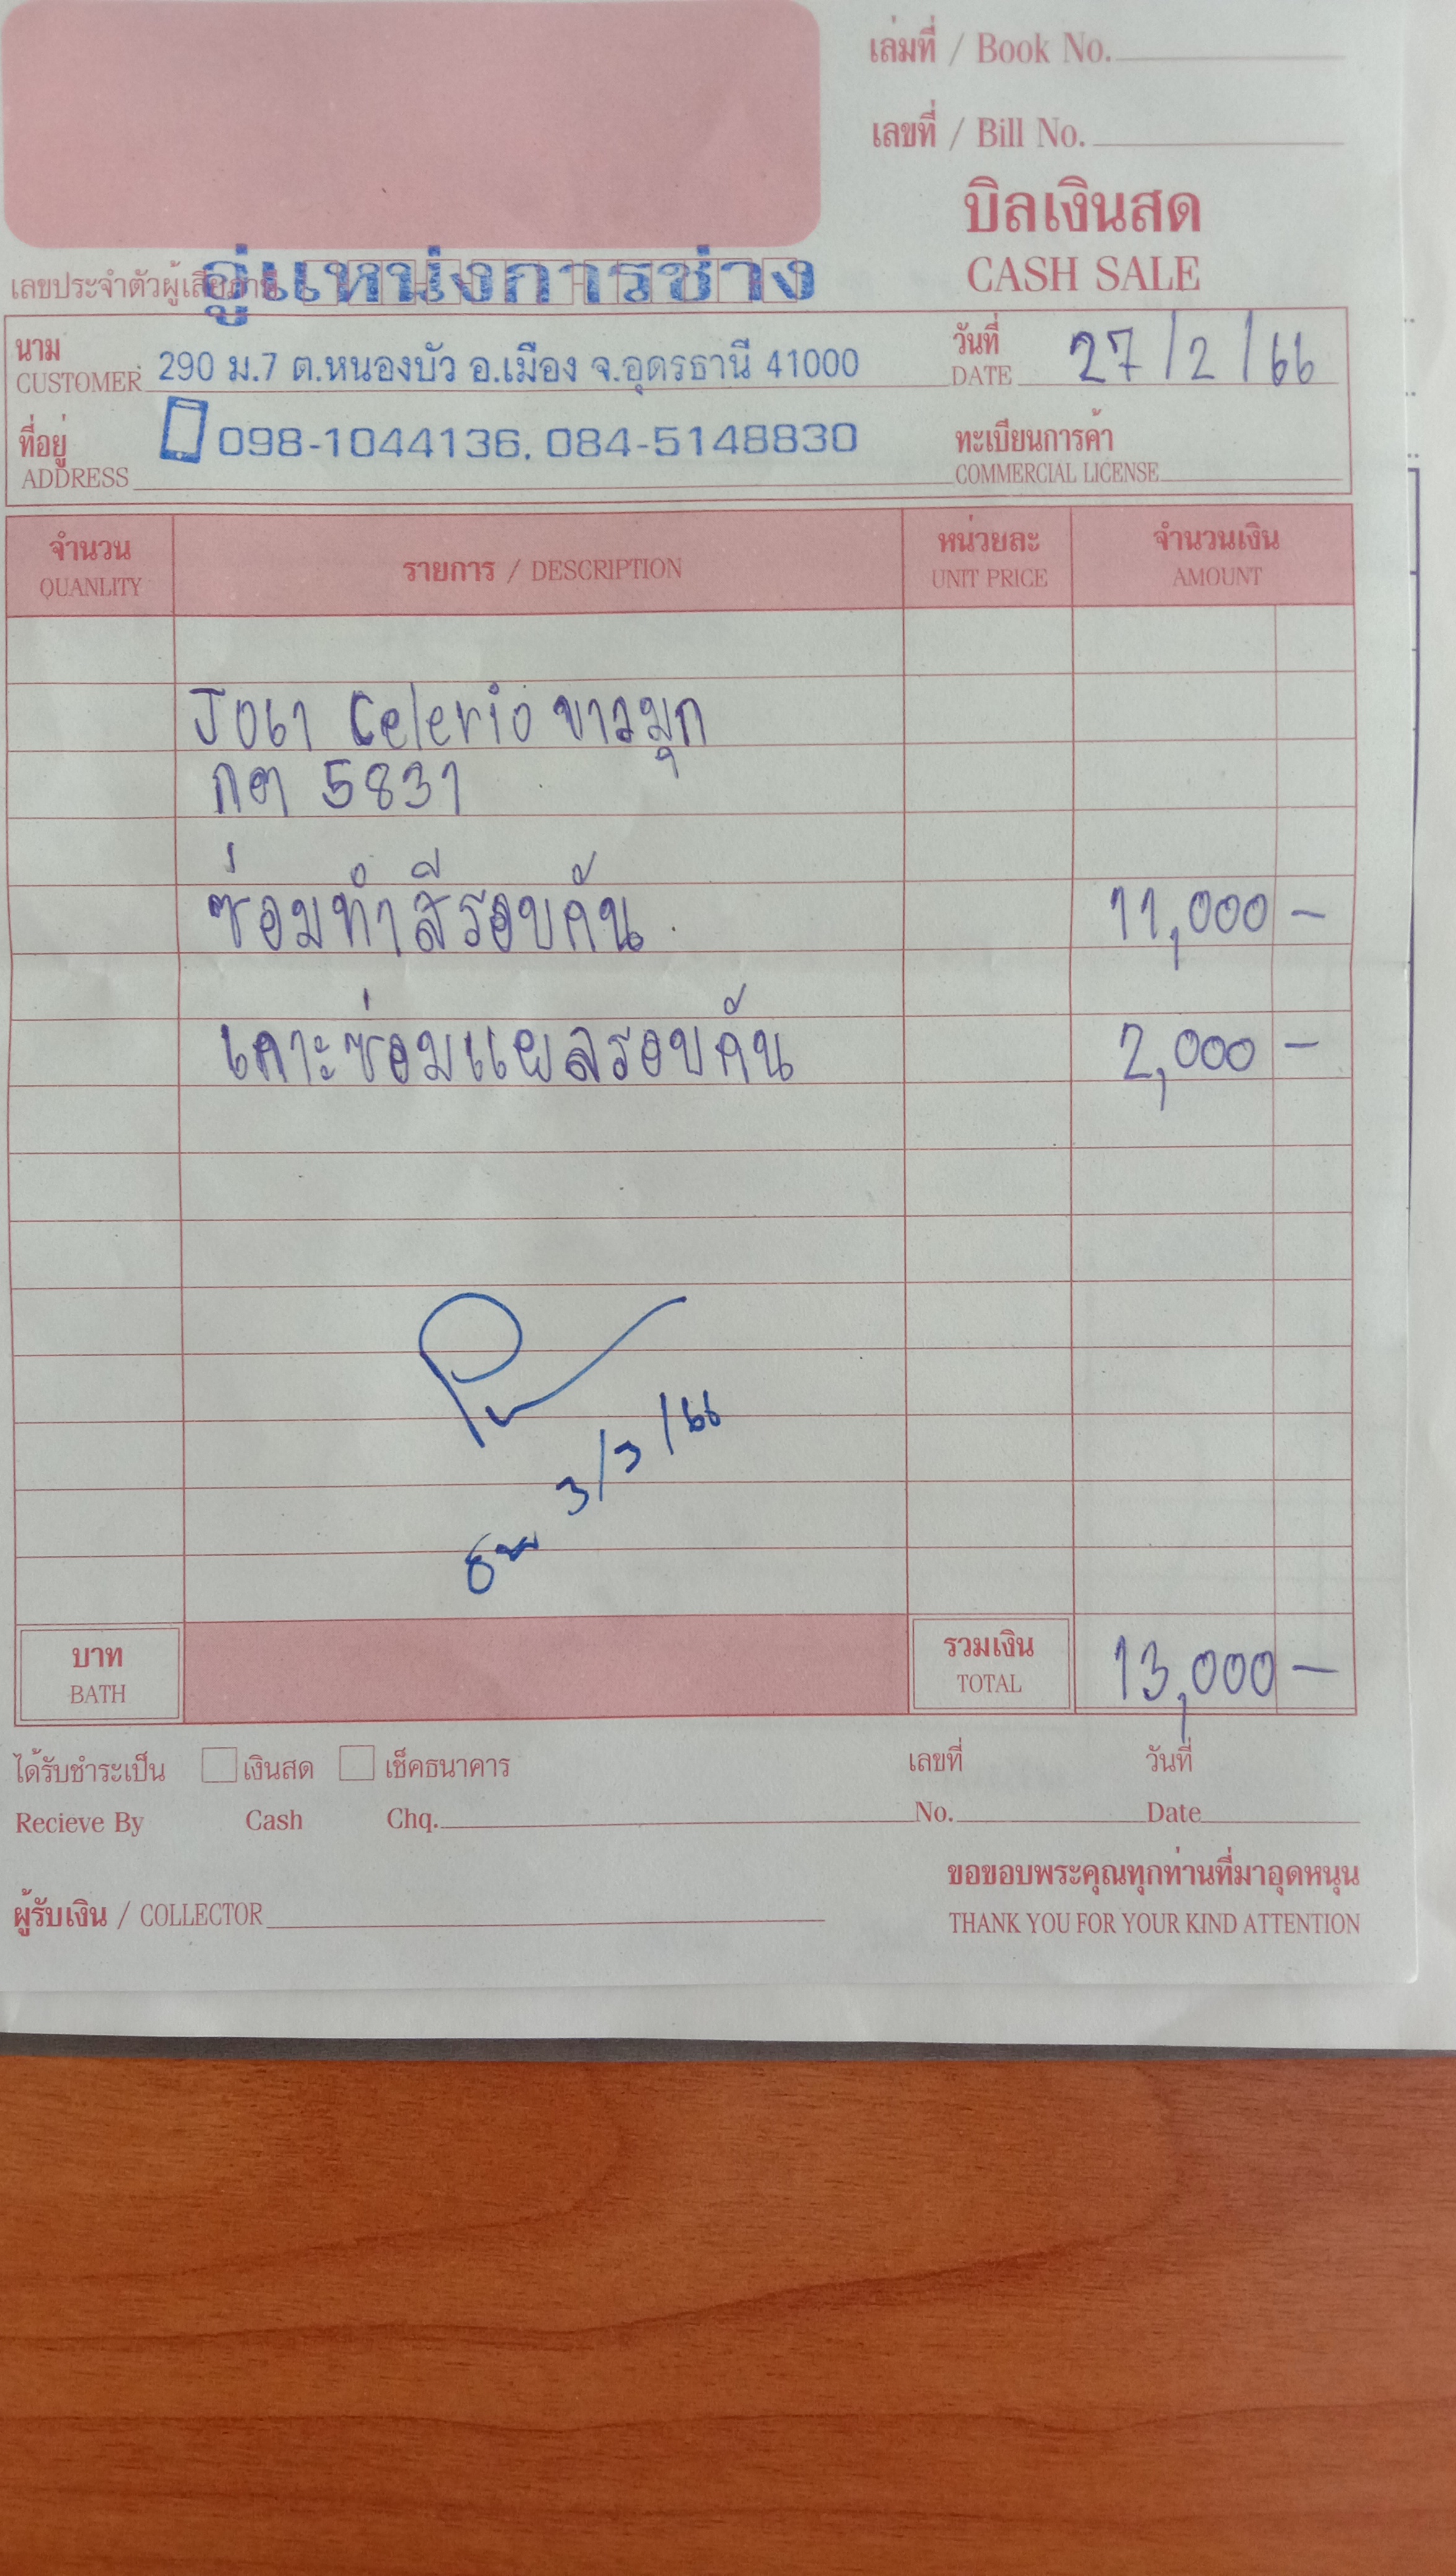 เล่มที่ / Book No.
เลขที่ / Bill No.
บิลเงินสด
CASH SALE
เลขประจำตัวผู้เสียภาษี
อู่แหน่งการช่าง
นาม
CUSTOMER 290 ม.7 ต.หนองบัว อ.เมือง จ.อุดรธานี 41000
วันที่
DATE 27/2/66
ที่อยู่
ADDRESS 098-1044136, 084-5148830
ทะเบียนการค้า
COMMERCIAL LICENSE
จำนวน
QUANLITY
รายการ / DESCRIPTION
หน่วยละ
UNIT PRICE
จำนวนเงิน
AMOUNT
Celerio ขาวมุก
กต 5831
ซ่อมทำสีรอบคัน 11,000 -
เคาะซ่อมแผลรอบคัน 2,000 -
3/3/66
บาท
BATH
รวมเงิน
TOTAL
13,000 -
ได้รับชำระเป็น เงินสด เช็คธนาคาร เลขที่ วันที่
Recieve By Cash Chq. No. Date
ขอขอบพระคุณทุกท่านที่มาอุดหนุน
ผู้รับเงิน / COLLECTOR
THANK YOU FOR YOUR KIND ATTENTION